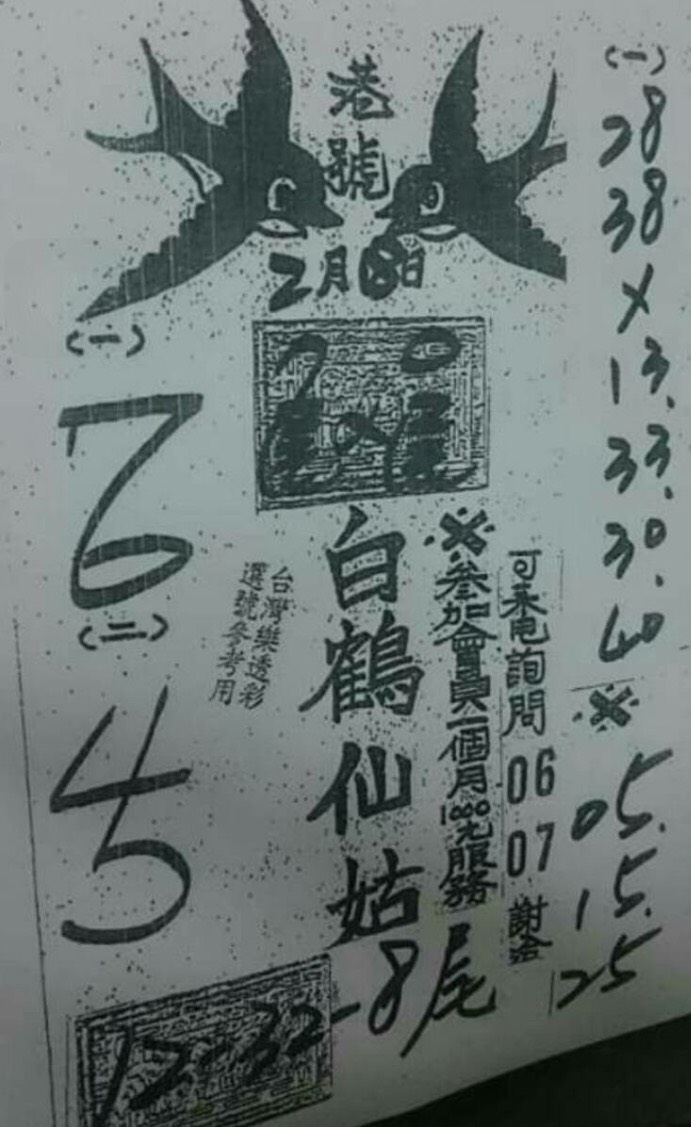 港號
2月18日
(一)
28
38
×
13.
33.
30.
40
※
05.
15.
25
可來電詢問 06 07 謝洽
※參加會員一個月1000元服務
白鶴仙姑
台灣樂透彩
選號參考用
(一)
7
6
(二)
4
5
12-32-8尾